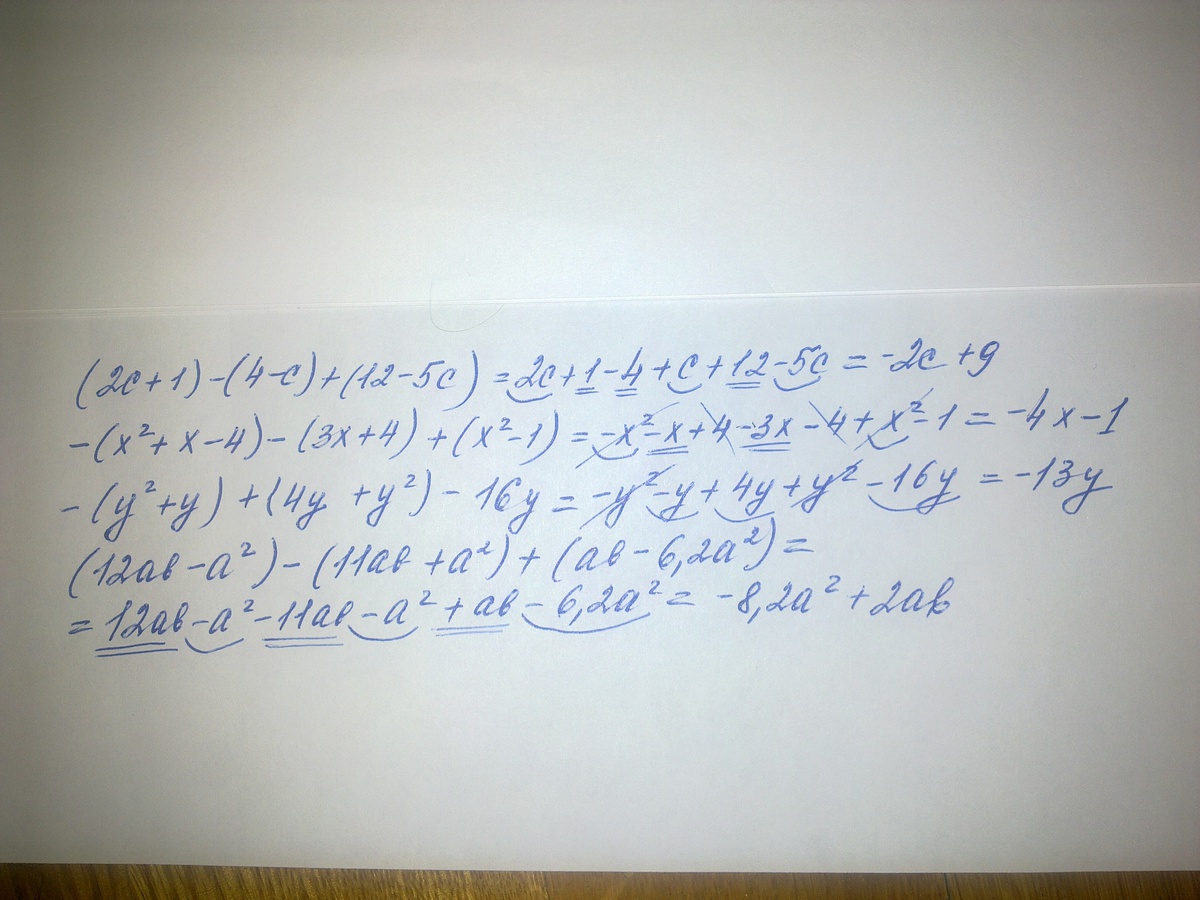 (2c+1)-(4-c)+(12-5c)=2c+1-4+c+12-5c=-2c+9
-(x²+x-4)-(3x+4)+(x²-1)=-x²-x+4-3x-4+x²-1=-4x-1
-(y²+y)+(4y+y²)-16y=-y²-y+4y+y²-16y=-13y
(12ab-a²)-(11ab+a²)+(ab-6,2a²)=
=12ab-a²-11ab-a²+ab-6,2a²=-8,2a²+2ab